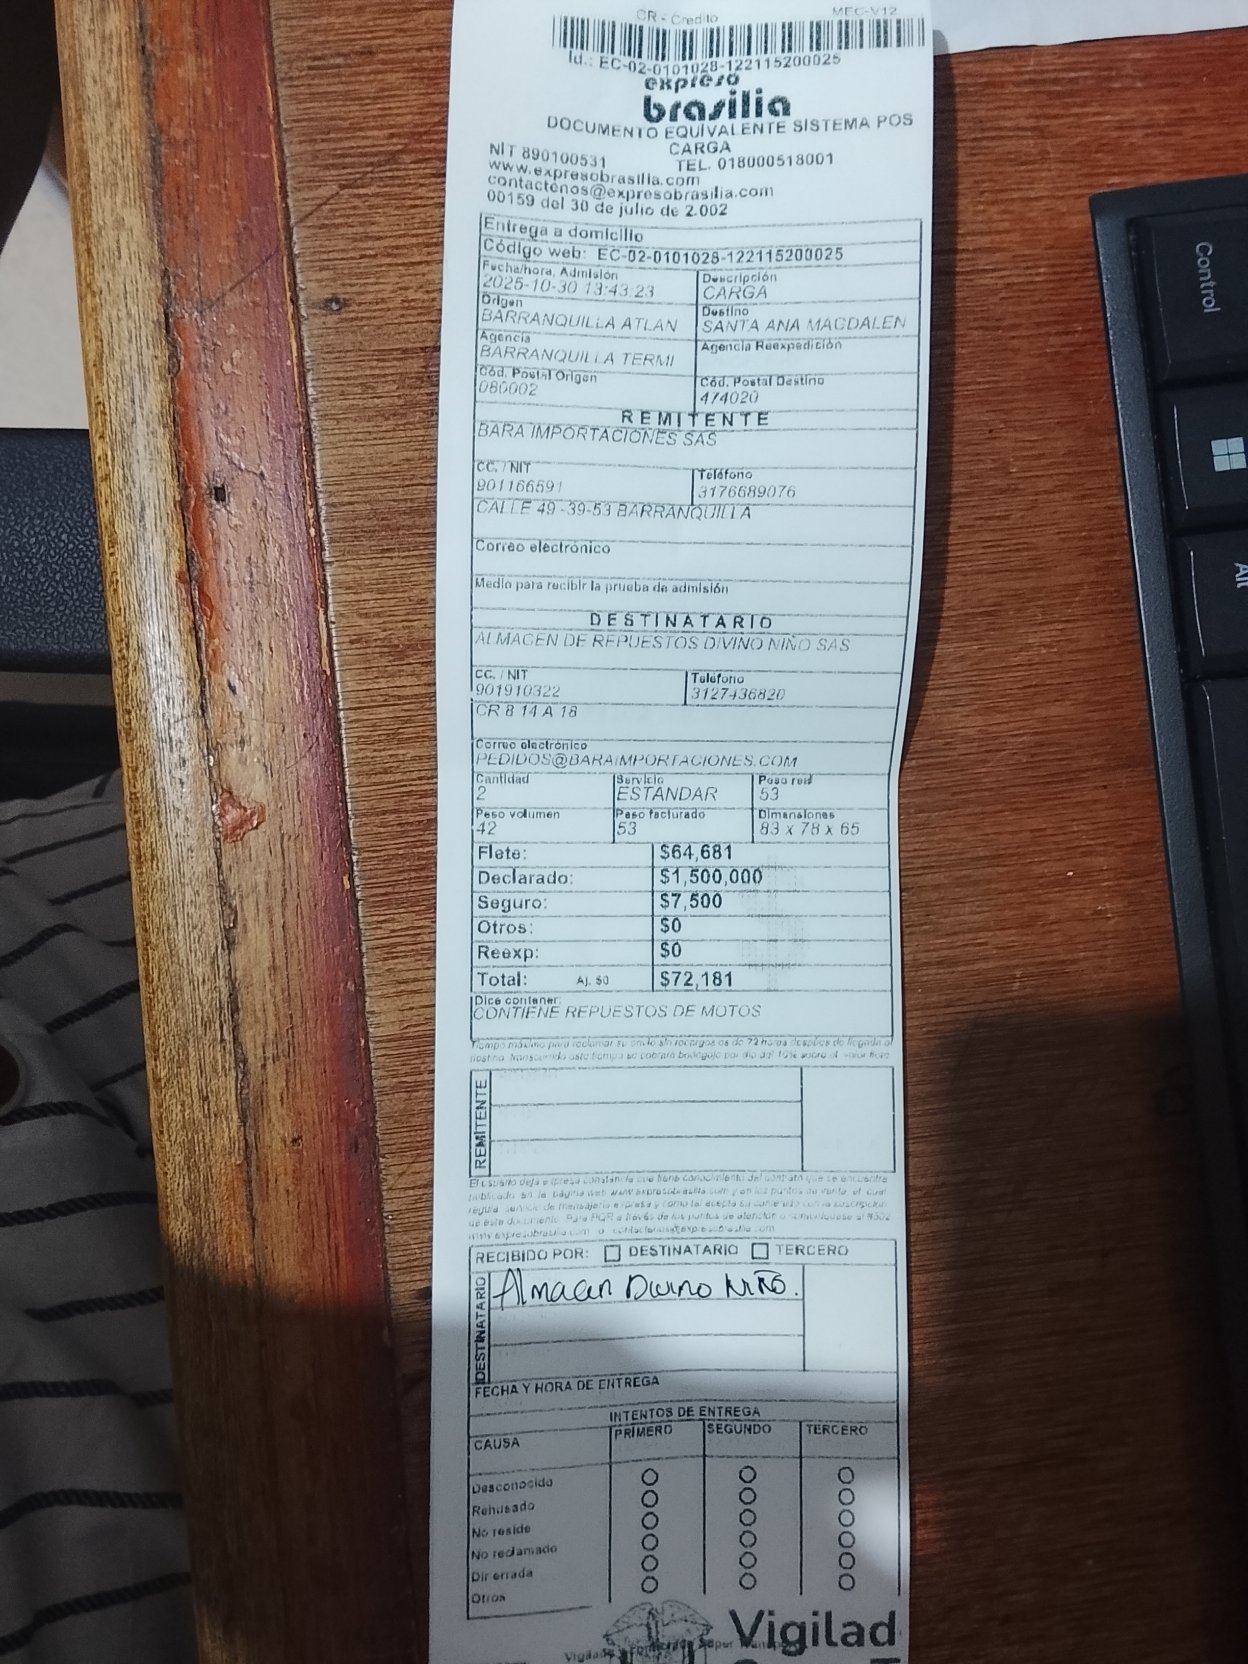 CR - Credito MEC-V12
Id.: EC-02-0101028-122115200025
expreso
brasilia
DOCUMENTO EQUIVALENTE SISTEMA POS
CARGA
NIT 890100531 TEL. 018000518001
www.expresobrasilia.com
contactenos@expresobrasilia.com
00159 del 30 de julio de 2.002
Entrega a domicilio
Código web: EC-02-0101028-122115200025
Fecha/hora, Admisión Descripción
2025-10-30 13:43:23 CARGA
Origen Destino
BARRANQUILLA ATLAN SANTA ANA MAGDALEN
Agencia Agencia Reexpedición
BARRANQUILLA TERMI
Cód. Postal Origen Cód. Postal Destino
080002 474020
REMITENTE
BARA IMPORTACIONES SAS
CC. / NIT Teléfono
901166591 3176689076
CALLE 49 -39-53 BARRANQUILLA
Correo electrónico
Medio para recibir la prueba de admisión
DESTINATARIO
ALMACEN DE REPUESTOS DIVINO NIÑO SAS
CC. / NIT Teléfono
901910322 3127436820
CR 8 14 A 18
Correo electrónico
PEDIDOS@BARAIMPORTACIONES.COM
Cantidad Servicio Peso real
2 ESTANDAR 53
Peso volumen Peso facturado Dimensiones
42 53 83 x 78 x 65
Flete: $64,681
Declarado: $1,500,000
Seguro: $7,500
Otros: $0
Reexp: $0
Total: Aj. $0 $72,181
Dice contener:
CONTIENE REPUESTOS DE MOTOS
Tiempo máximo para reclamar su envío sin recargos es de 72 horas después de llegada al
destino, transcurrido este tiempo se cobrará bodegaje por día del 10% sobre el valor flete
REMITENTE
El usuario deja expresa constancia que tiene conocimiento del contrato que se encuentra
publicado en la página web www.expresobrasilia.com y en los puntos de venta, el cual
regula servicio de mensajería expresa y como tal acepta su contenido con la suscripción
de este documento. Para PQR a través de los puntos de atención o comuníquese al #502
www.expresobrasilia.com o contactenos@expresobrasilia.com
RECIBIDO POR: DESTINATARIO TERCERO
DESTINATARIO
Almacen Divino Niño.
FECHA Y HORA DE ENTREGA
INTENTOS DE ENTREGA
CAUSA PRIMERO SEGUNDO TERCERO
Desconocido
Rehusado
No reside
No reclamado
Dir errada
Otros
Vigilad
Control
Alt